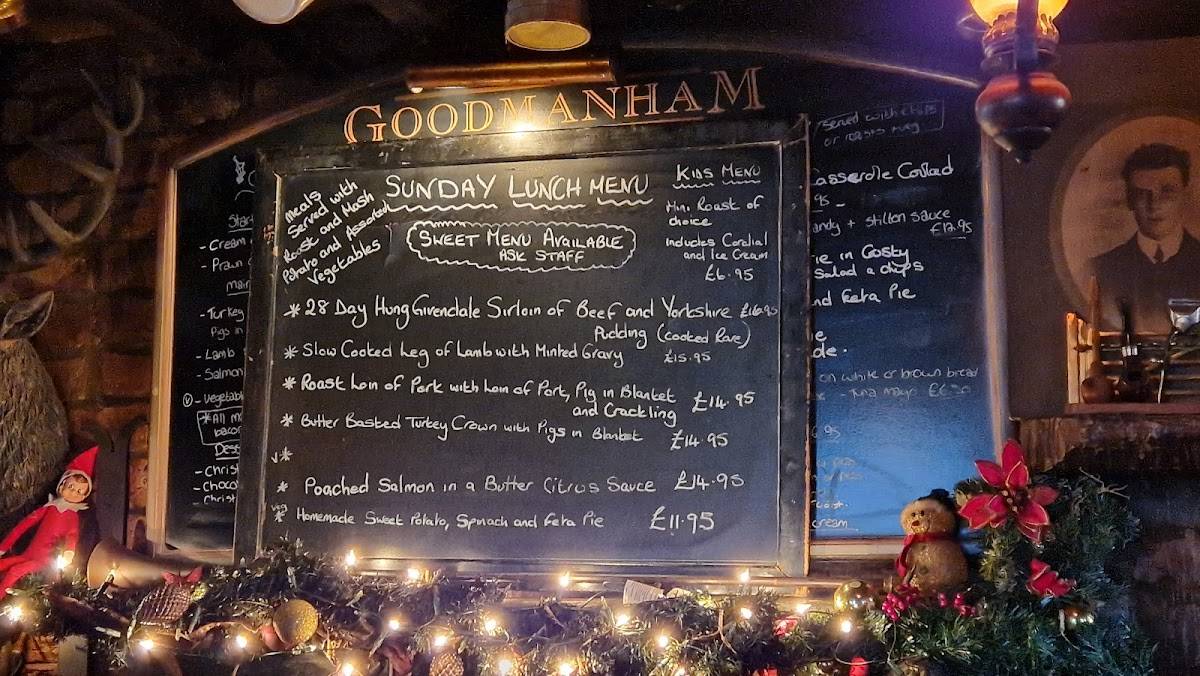 GOODMANHAM
SUNDAY LUNCH MENU
Meals
Served with
Roast and Mash
Potato and Assorted
Vegetables
SWEET MENU AVAILABLE
ASK STAFF
KIDS MENU
Mini Roast of
choice
Includes Cordial
and Ice Cream
£6.95
* 28 Day Hung Givendale Sirloin of Beef and Yorkshire £16.95
Pudding (cooked Rare)
* Slow Cooked Leg of Lamb with Minted Gravy £15.95
* Roast Loin of Pork with Loin of Pork, Pig in Blanket
and Crackling £14.95
* Butter Basted Turkey Crown with Pigs in Blanket £14.95
V*
* Poached Salmon in a Butter Citrus Sauce £14.95
Veg
* Homemade Sweet Potato, Spinach and Feta Pie £11.95
Start
- Cream
- Prawn
Main
- Turkey
Pigs in
- Lamb
- Salmon
V - Vegetab
*All m
bacon
Des
- Christ
- Choco
- Christ
served with chips
or roasts + veg
Casserole Collad
95
andy + stilton sauce
£12.95
ie in Cosky
Salad & chips
nd Feta Pie
ie
de.
on white or brown bread
- Tuna mayo £6.50
6.95
cream